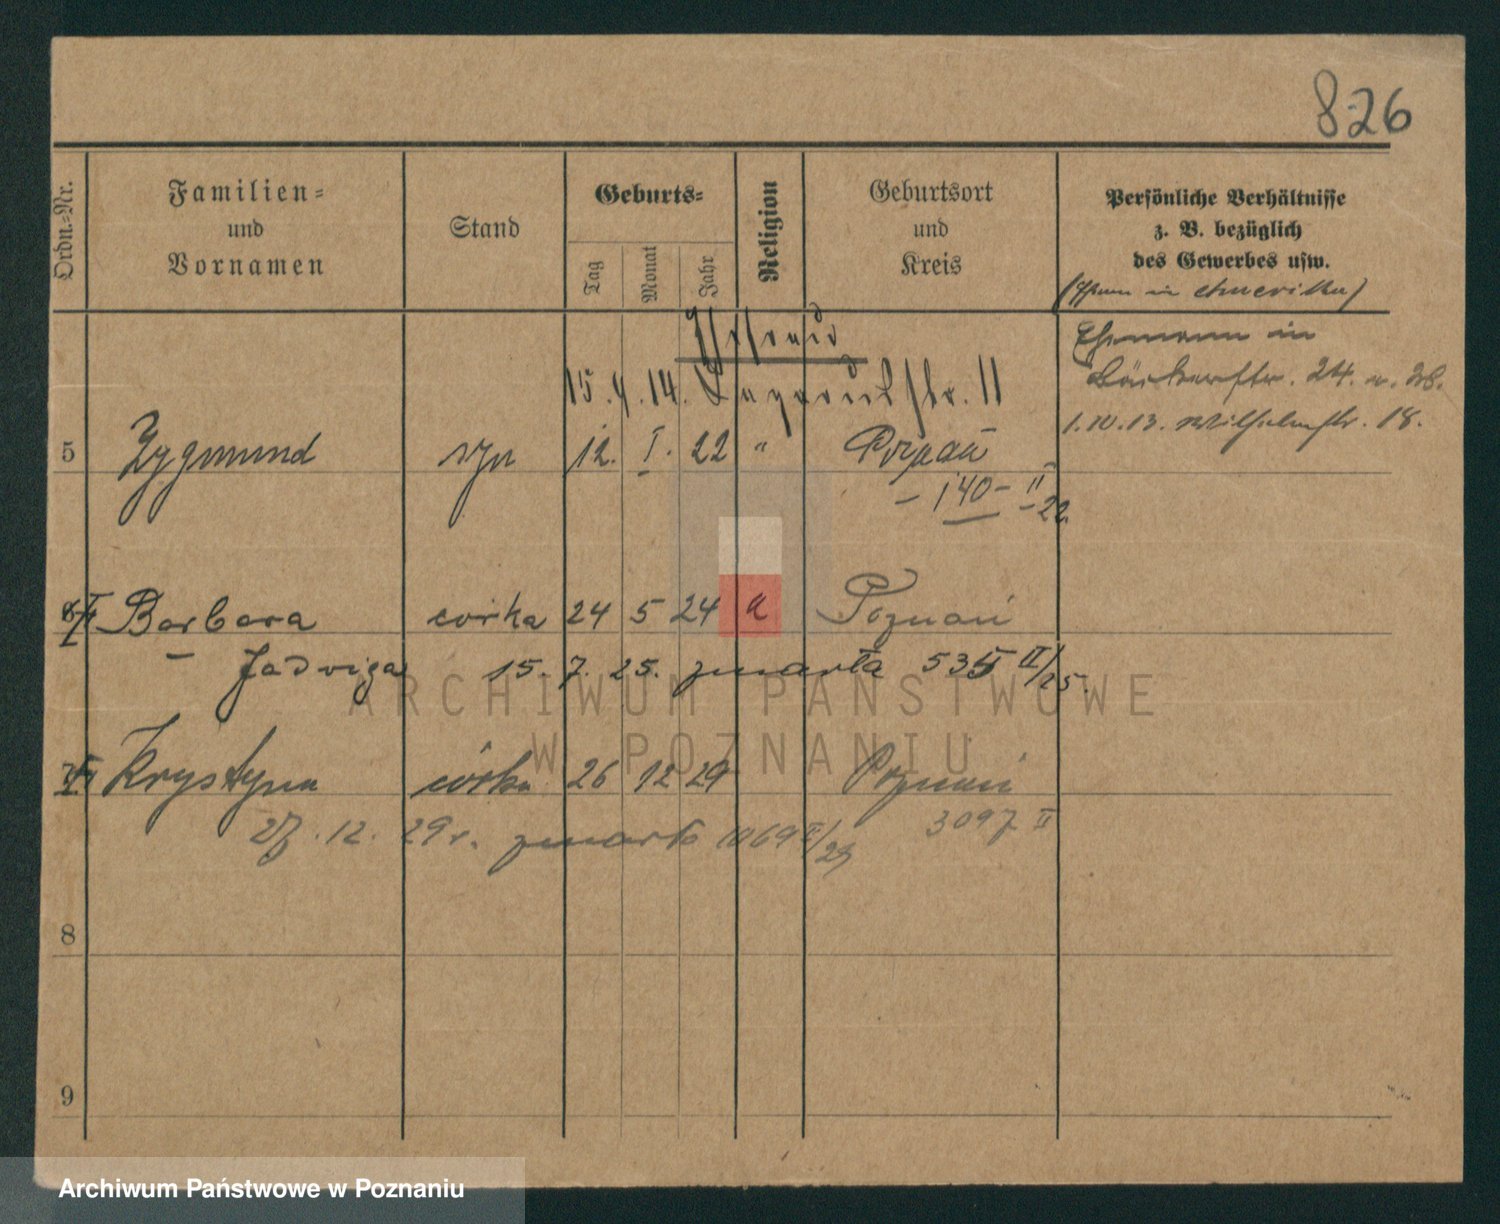 826
Ordn.-Nr.
Familien-
und
Vornamen
Stand
Geburts-
Tag
Monat
Jahr
Religion
Geburtsort
und
Kreis
Persönliche Verhältnisse
z. B. bezüglich
des Gewerbes usw.
in Amerika)
Ehemann in
Bäckerstr. 24. 28.
1.10.13. Wilhelmstr. 18.
15.4.14. 11
5 Zygmund syn 12. I. 22 " Poznań
– 140 – II – 22
6 Barbara córka 24 5 24 k Poznań
– Jadwiga 15. 7. 25. zmarła 535 II/25.
7 Krystyna córka 26 12 29 Poznań
27.12.29r. zmarła 1069 II/29 3097 II
8
9
ARCHIWUM PAŃSTWOWE
W POZNANIU
Archiwum Państwowe w Poznaniu